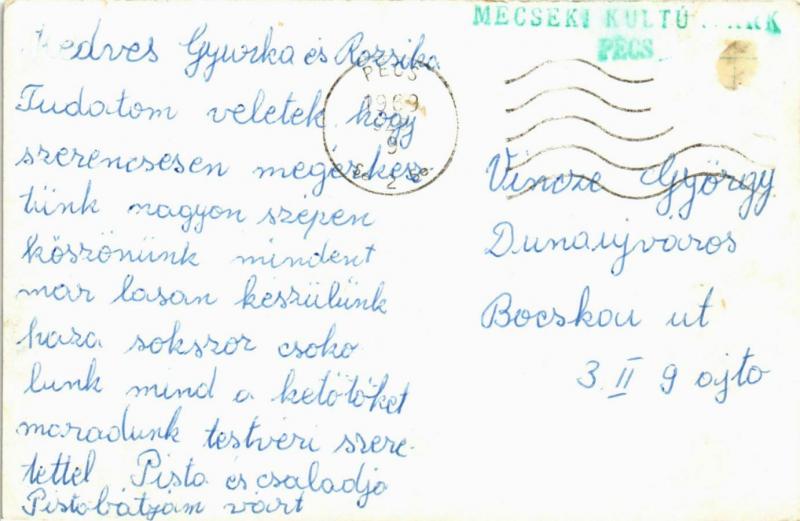 MECSEKI KULTÚ RK
PÉCS
PÉCS
1969
9
2
Kedves Gyurka és Rozsika
Tudatom veletek hogy
szerencsesen megérkez
tünk nagyon szépen
köszönünk mindent
mar lasan készülünk
haza sokszor csoko
lunk mind a ketötöket
maradunk testveri szere-
tettel Pista és családja
Pistabátyám várt
Vincze György
Dunaujvaros
Bocskai ut
3 II 9 ajto